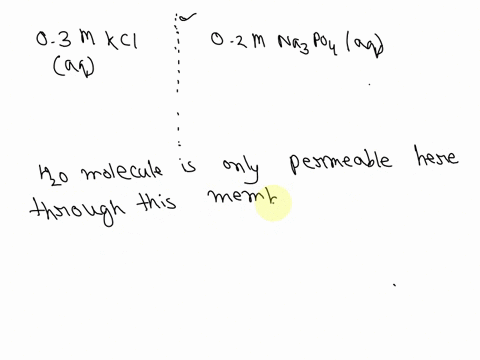 0.3 M KCl
(aq)
0.2 M Na3PO4 (aq)
H2O molecule is only permeable here
through this memb